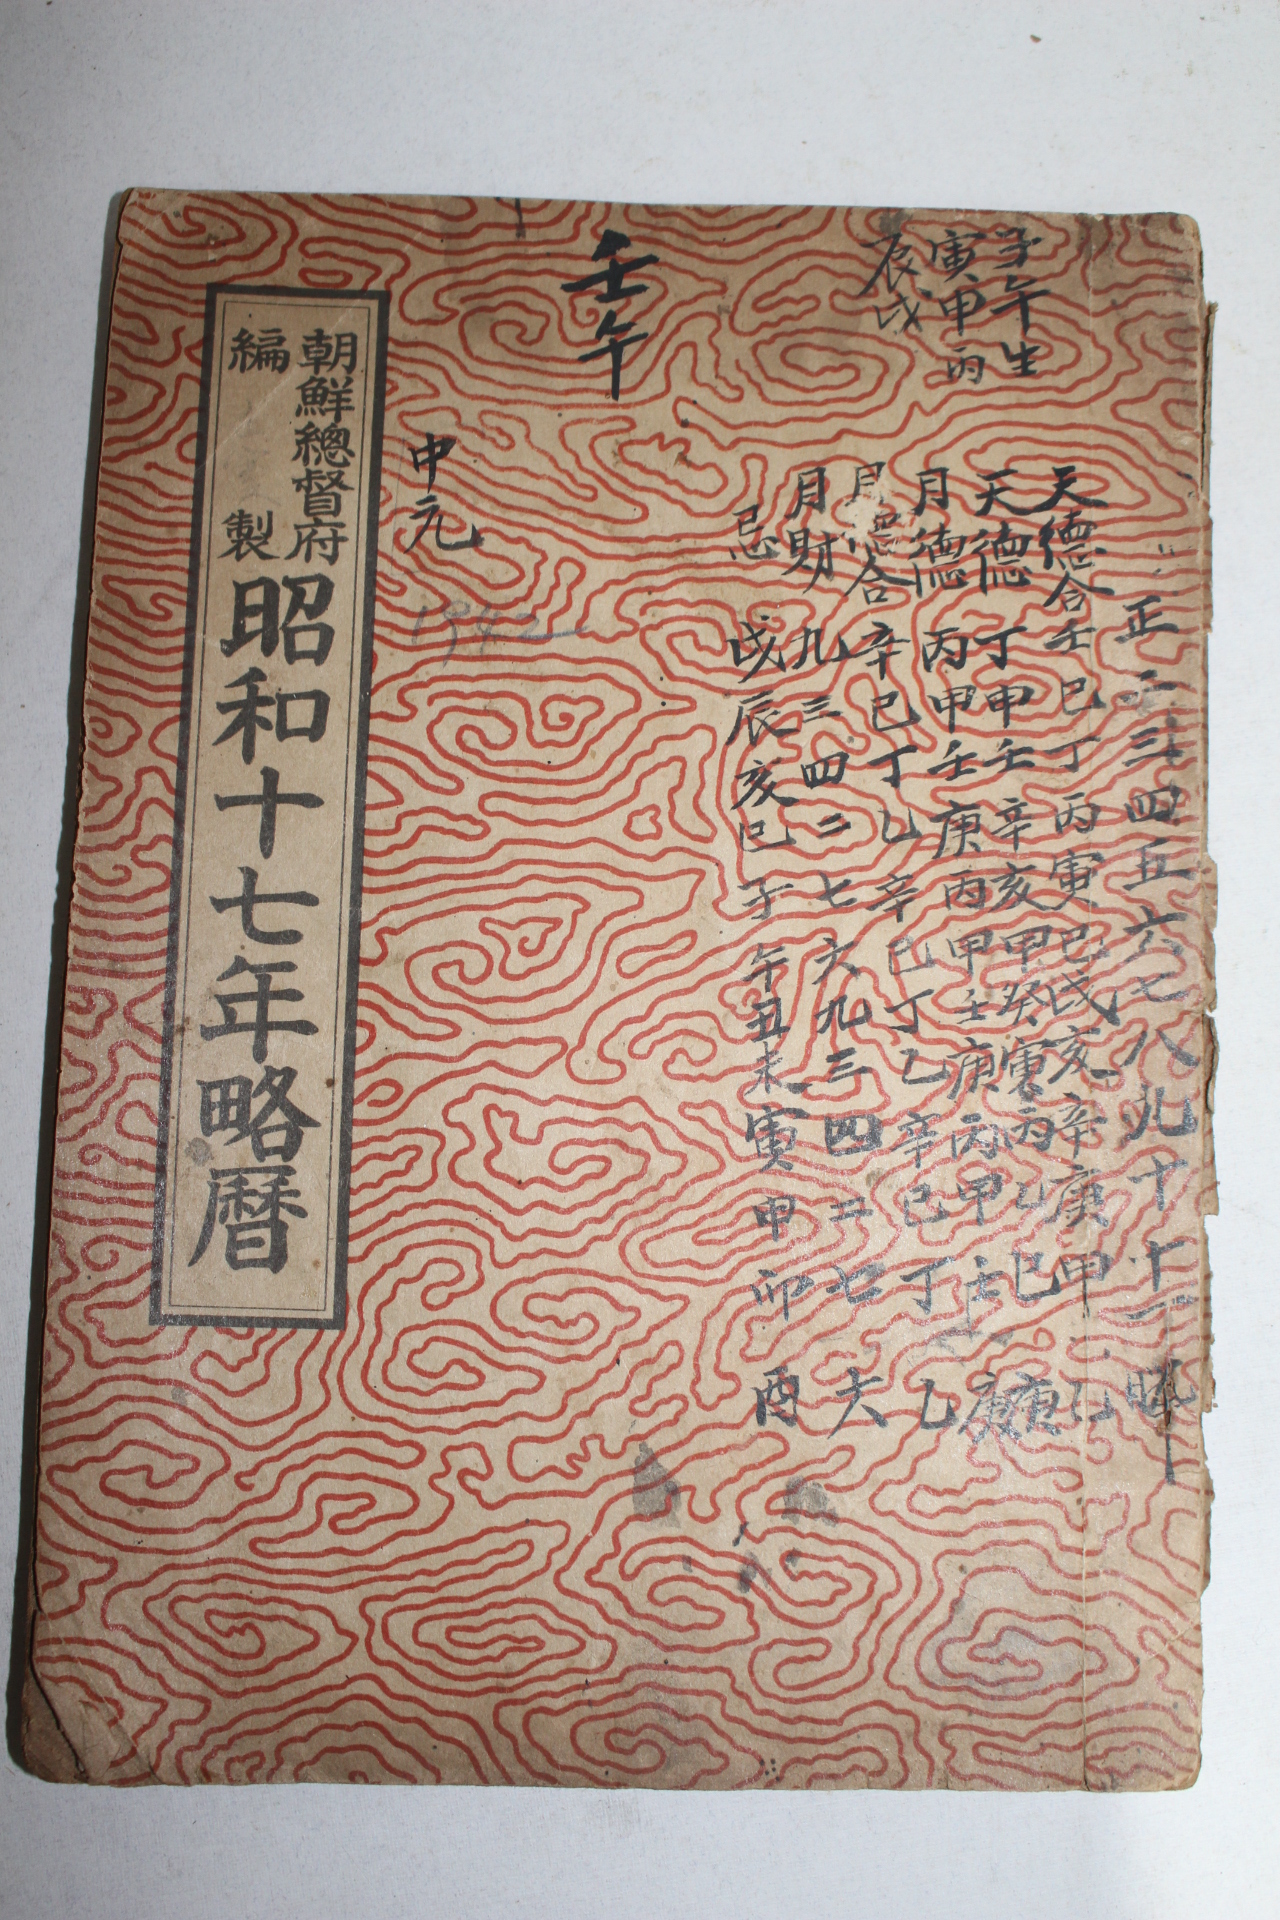 子午生
寅申丙
辰戌
正二三四五六七八九十十一
天德合壬巳丁丙寅己戊亥辛庚甲乙
天德丁申壬辛亥甲癸寅丙乙巳庚
月德丙甲壬庚丙甲壬庚丙甲壬庚
合辛己丁乙辛己丁乙辛己丁乙
月財九三四二七六九三四二七六
忌戌辰亥巳子午丑未寅申卯酉
壬午
中元
1942
朝鮮總督府
編製
昭和十七年略曆